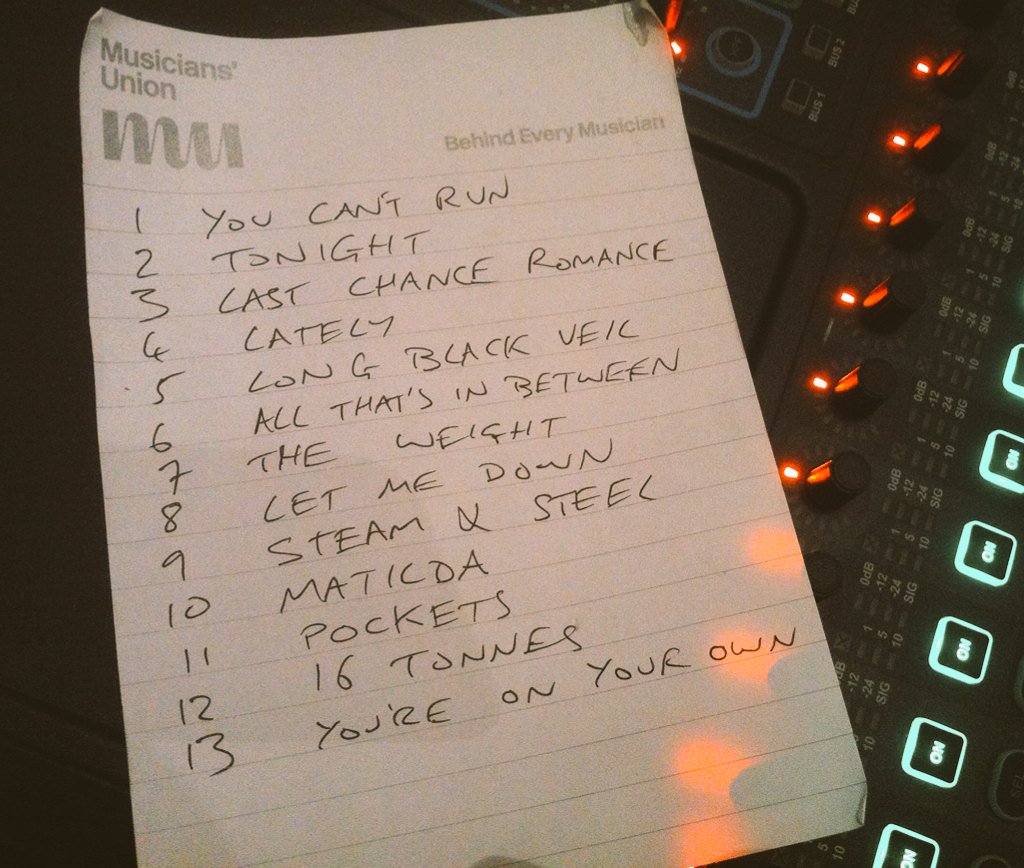 Musicians'
Union
mu
Behind Every Musician
1 YOU CAN'T RUN
2 TONIGHT
3 LAST CHANCE ROMANCE
4 LATELY
5 LONG BLACK VEIL
6 ALL THAT'S IN BETWEEN
7 THE WEIGHT
8 LET ME DOWN
9 STEAM & STEEL
10 MATILDA
11 POCKETS
12 16 TONNES
13 YOU'RE ON YOUR OWN
BUS 2
BUS 1
0dB
-12
-24
SIG
1
5
10
ON
ON
ON
ON
ON